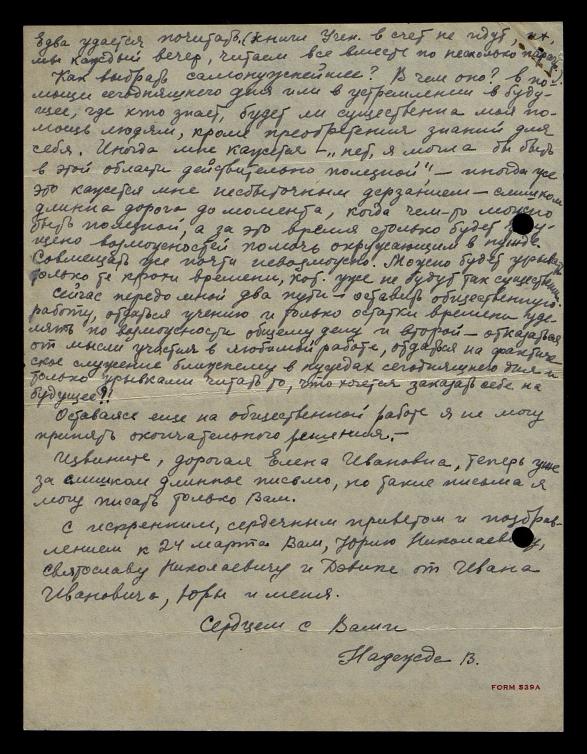 Едва удается почитать. (Книги Учен. в счет не идут, их,
мы каждый вечер, читаем все вместе по несколько параг.)
Как выбрать самонужнейшее? В чем оно? в по-
мощи сегодняшнего дня или в устремлении в буду-
щее, где кто знает, будет ли существенна моя по-
мощь людям, кроме преобретения знаний для
себя. Иногда мне кажется – „нет, я могла бы быть
в этой области действительно полезной" – иногда же
это кажется мне несбыточным дерзанием – слишком
длинна дорога до момента, когда чем-то можно
быть полезной, а за это время столько будет упу-
щено возможностей помочь окружающим в нужде.
Совмещать же почти невозможно. Можно будет урывать
только те крохи времени, кот. уже не будут так существен.
Сейчас передо мной два пути – оставить общественную
работу, отдаться учению и только остатки времени уде-
лять по возможности общему делу и второй – отказаться
от мысли участия в любимой работе, отдаться на фактиче
ское служение ближнему в нуждах сегодняшнего дня и
только урывками читать то, что хочется заказать себе на
будущее?!
Оставаясь еще на общественной работе я не могу
принять окончательного решения. –
Извините, дорогая Елена Ивановна, теперь уже
за слишком длинное письмо, но такие письма я
могу писать только Вам.
С искренним, сердечным приветом и поздрав-
лением к 24 марта Вам, Юрию Николаевичу,
Святославу Николаевичу и Дэвике от Ивана
Ивановича, Юры и меня.
Сердцем с Вами
Надежда В.
FORM 539A